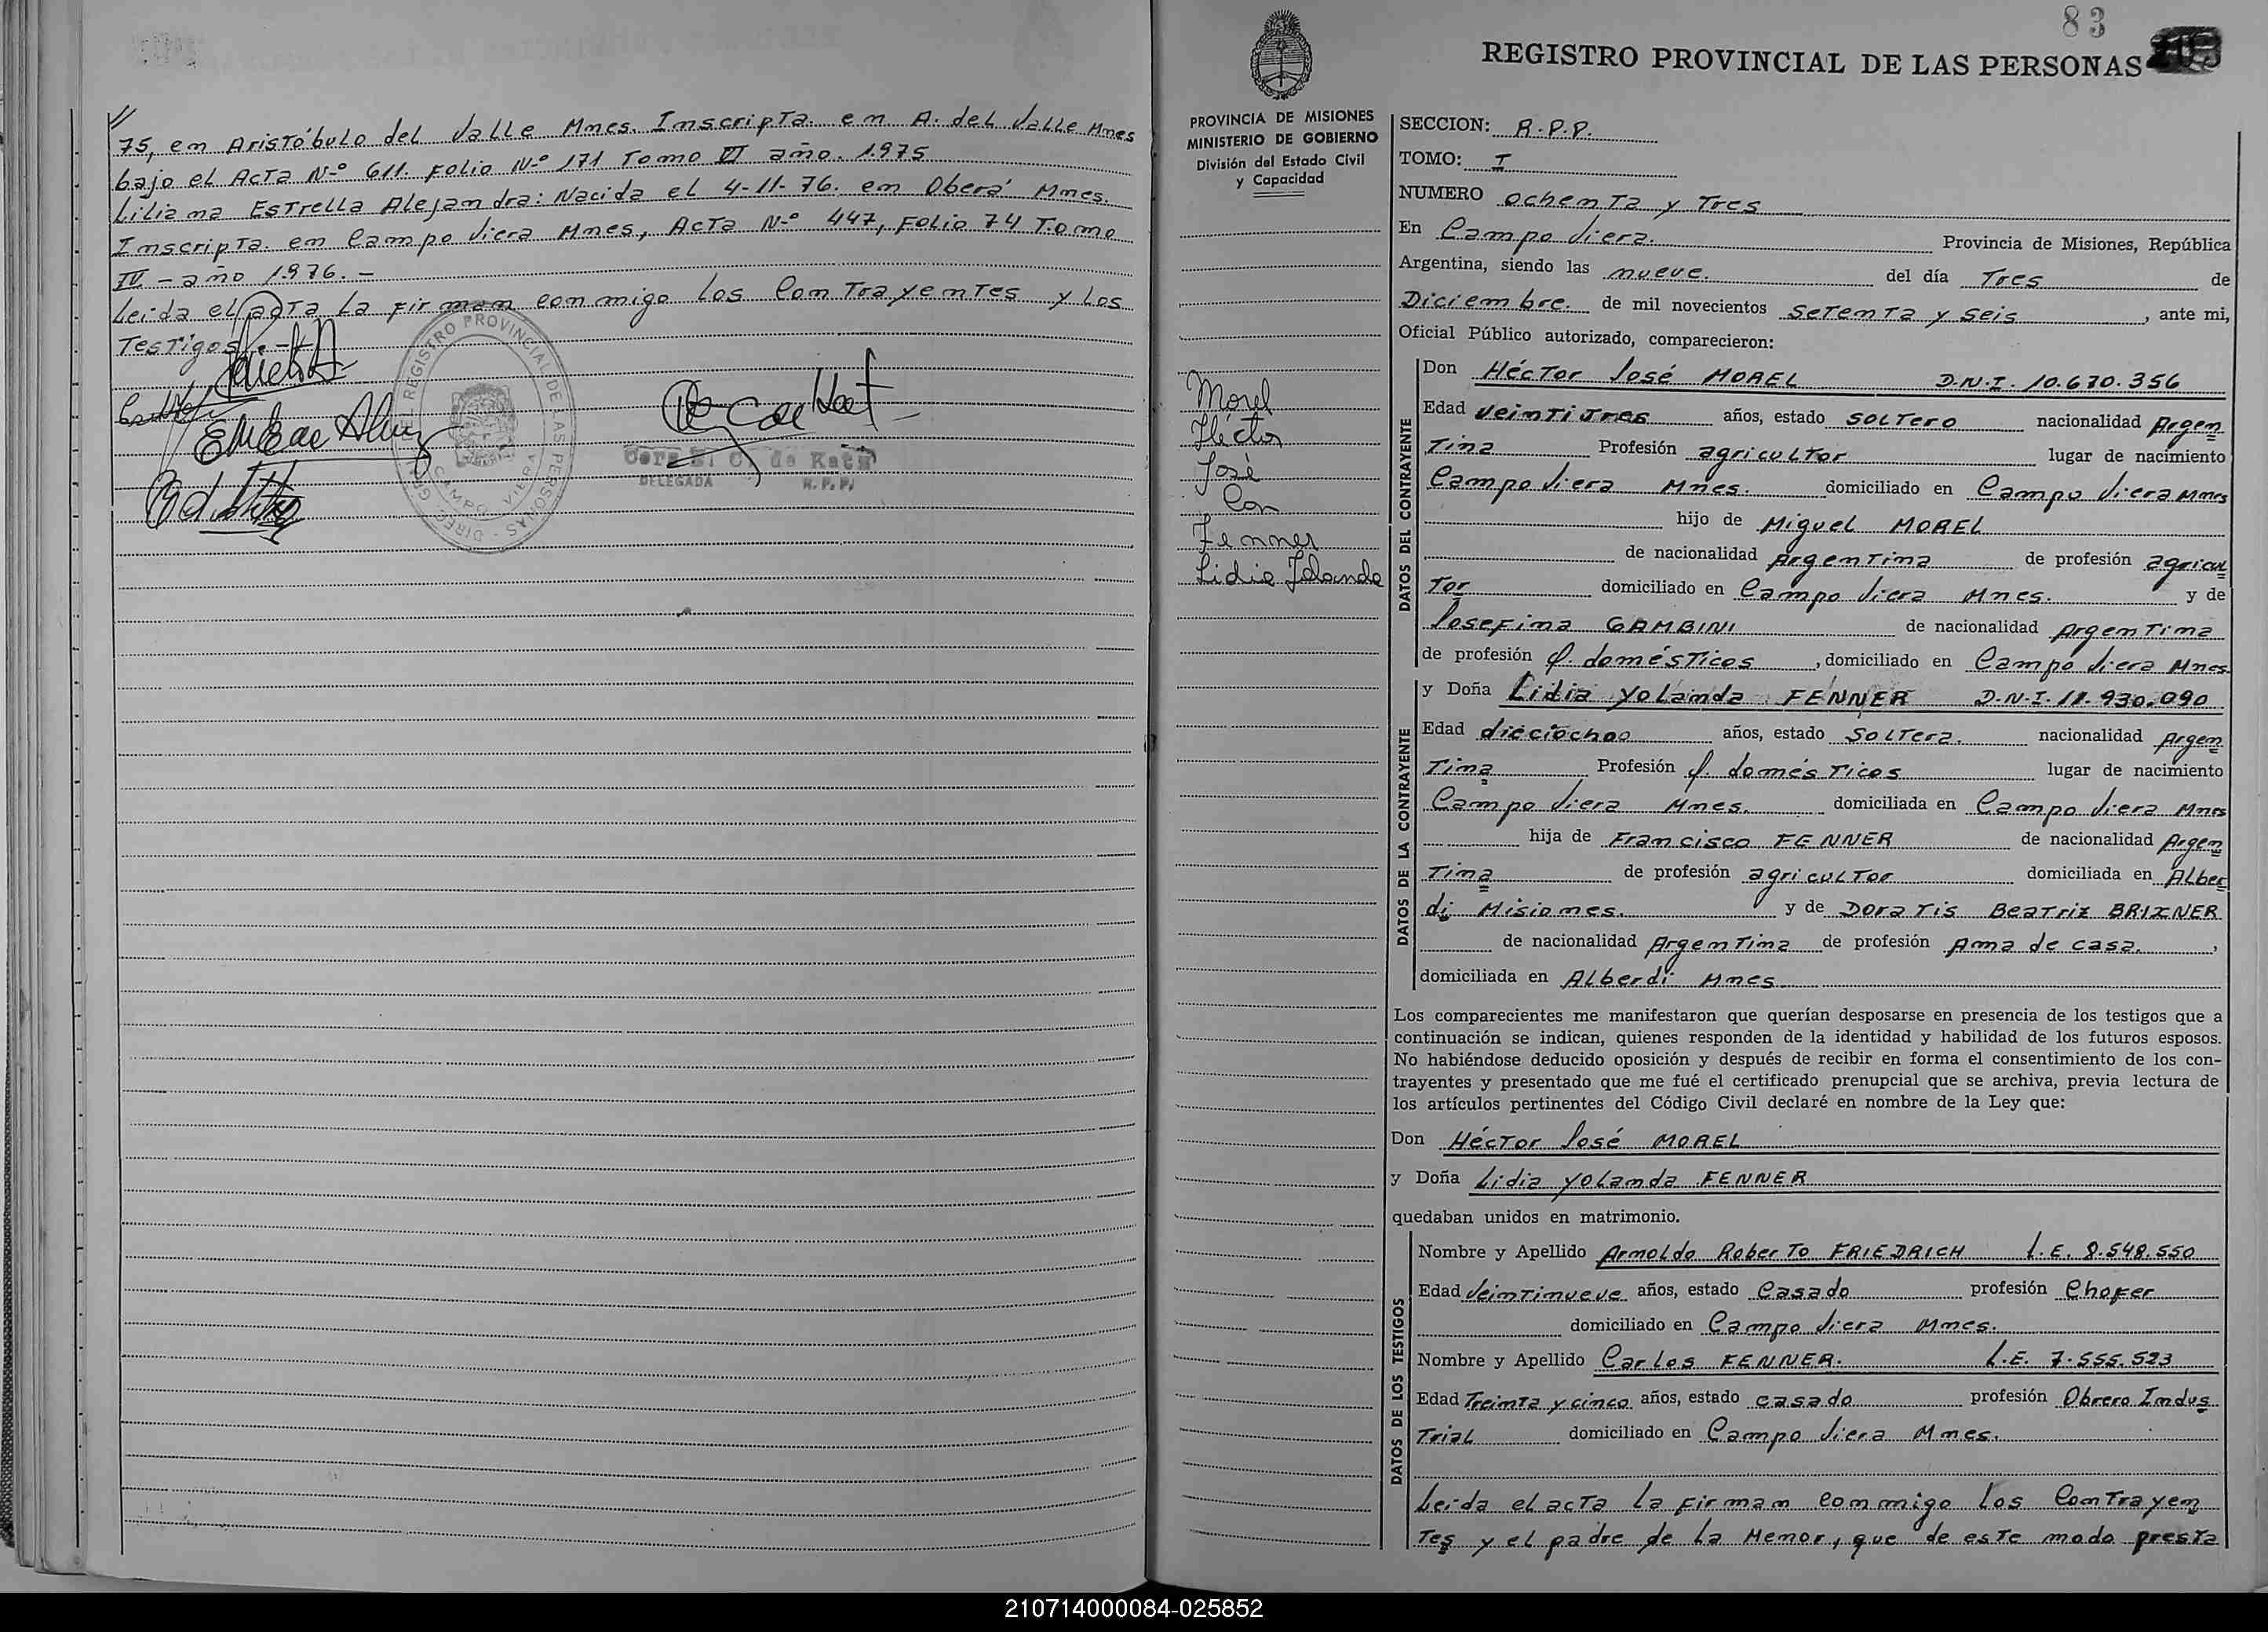 //
75, en Aristóbulo del Valle Mnes. Inscripta en A. del Valle Mnes
bajo el Acta N-º 611. Folio N-º 171 Tomo VI año. 1975
Liliana Estrella Alejandra: Nacida el 4-11-76. en Oberá Mnes.
Inscripta. en Campo Viera Mnes, Acta N-º 447, Folio 74 Tomo
IV - año 1976. -
Leida el acta la firman conmigo los Contrayentes y los
Testigos. -
DIREC. GRAL. REGISTRO PROVINCIAL DE LAS PERSONAS
CAMPO VIERA
de Katz
DELEGADA R. P. P.
83
REGISTRO PROVINCIAL DE LAS PERSONAS
PROVINCIA DE MISIONES
MINISTERIO DE GOBIERNO
División del Estado Civil
y Capacidad
Morel
Héctor
José
Con
Fenner
Lidia Yolanda
SECCION: R.P.P.
TOMO: I
NUMERO ochenta y Tres
En Campo Viera. Provincia de Misiones, República
Argentina, siendo las nueve. del día Tres de
Diciembre. de mil novecientos setenta y seis, ante mi,
Oficial Público autorizado, comparecieron:
DATOS DEL CONTRAYENTE
Don Héctor José MOREL D.N.I. 10.670.356
Edad veintitres años, estado soltero nacionalidad Argen
tina Profesión agricultor lugar de nacimiento
Campo Viera Mnes. domiciliado en Campo Viera Mnes
hijo de Miguel MOREL
de nacionalidad Argentina de profesión agricul
tor domiciliado en Campo Viera Mnes. y de
Josefina GAMBINI de nacionalidad Argentina
de profesión q. domésticos, domiciliado en Campo Viera Mnes
DATOS DE LA CONTRAYENTE
y Doña Lidia Yolanda FENNER D.N.I. 11.930.090
Edad dieciocho años, estado Soltera. nacionalidad Argen
tina Profesión q. domésticos lugar de nacimiento
Campo Viera Mnes. domiciliada en Campo Viera Mnes
hija de Francisco FENNER de nacionalidad Argen
tina de profesión agricultor domiciliada en Alber
di Misiones. y de Doratis Beatriz BRIXNER
de nacionalidad Argentina de profesión Ama de casa.,
domiciliada en Alberdi Mnes
Los comparecientes me manifestaron que querían desposarse en presencia de los testigos que a
continuación se indican, quienes responden de la identidad y habilidad de los futuros esposos.
No habiéndose deducido oposición y después de recibir en forma el consentimiento de los con-
trayentes y presentado que me fué el certificado prenupcial que se archiva, previa lectura de
los artículos pertinentes del Código Civil declaré en nombre de la Ley que:
Don Héctor José MOREL
y Doña Lidia Yolanda FENNER
quedaban unidos en matrimonio.
DATOS DE LOS TESTIGOS
Nombre y Apellido Arnoldo Roberto FRIEDRICH L.E. 8.548.550
Edad Veintinueve años, estado Casado profesión Chofer
domiciliado en Campo Viera Mnes.
Nombre y Apellido Carlos FENNER. L.E. 7.555.523
Edad Treinta y cinco años, estado casado profesión Obrero Indus
trial domiciliado en Campo Viera Mnes.
Leida el acta la firman conmigo los Contrayen
tes y el padre de la Menor, que de este modo presta
210714000084-025852